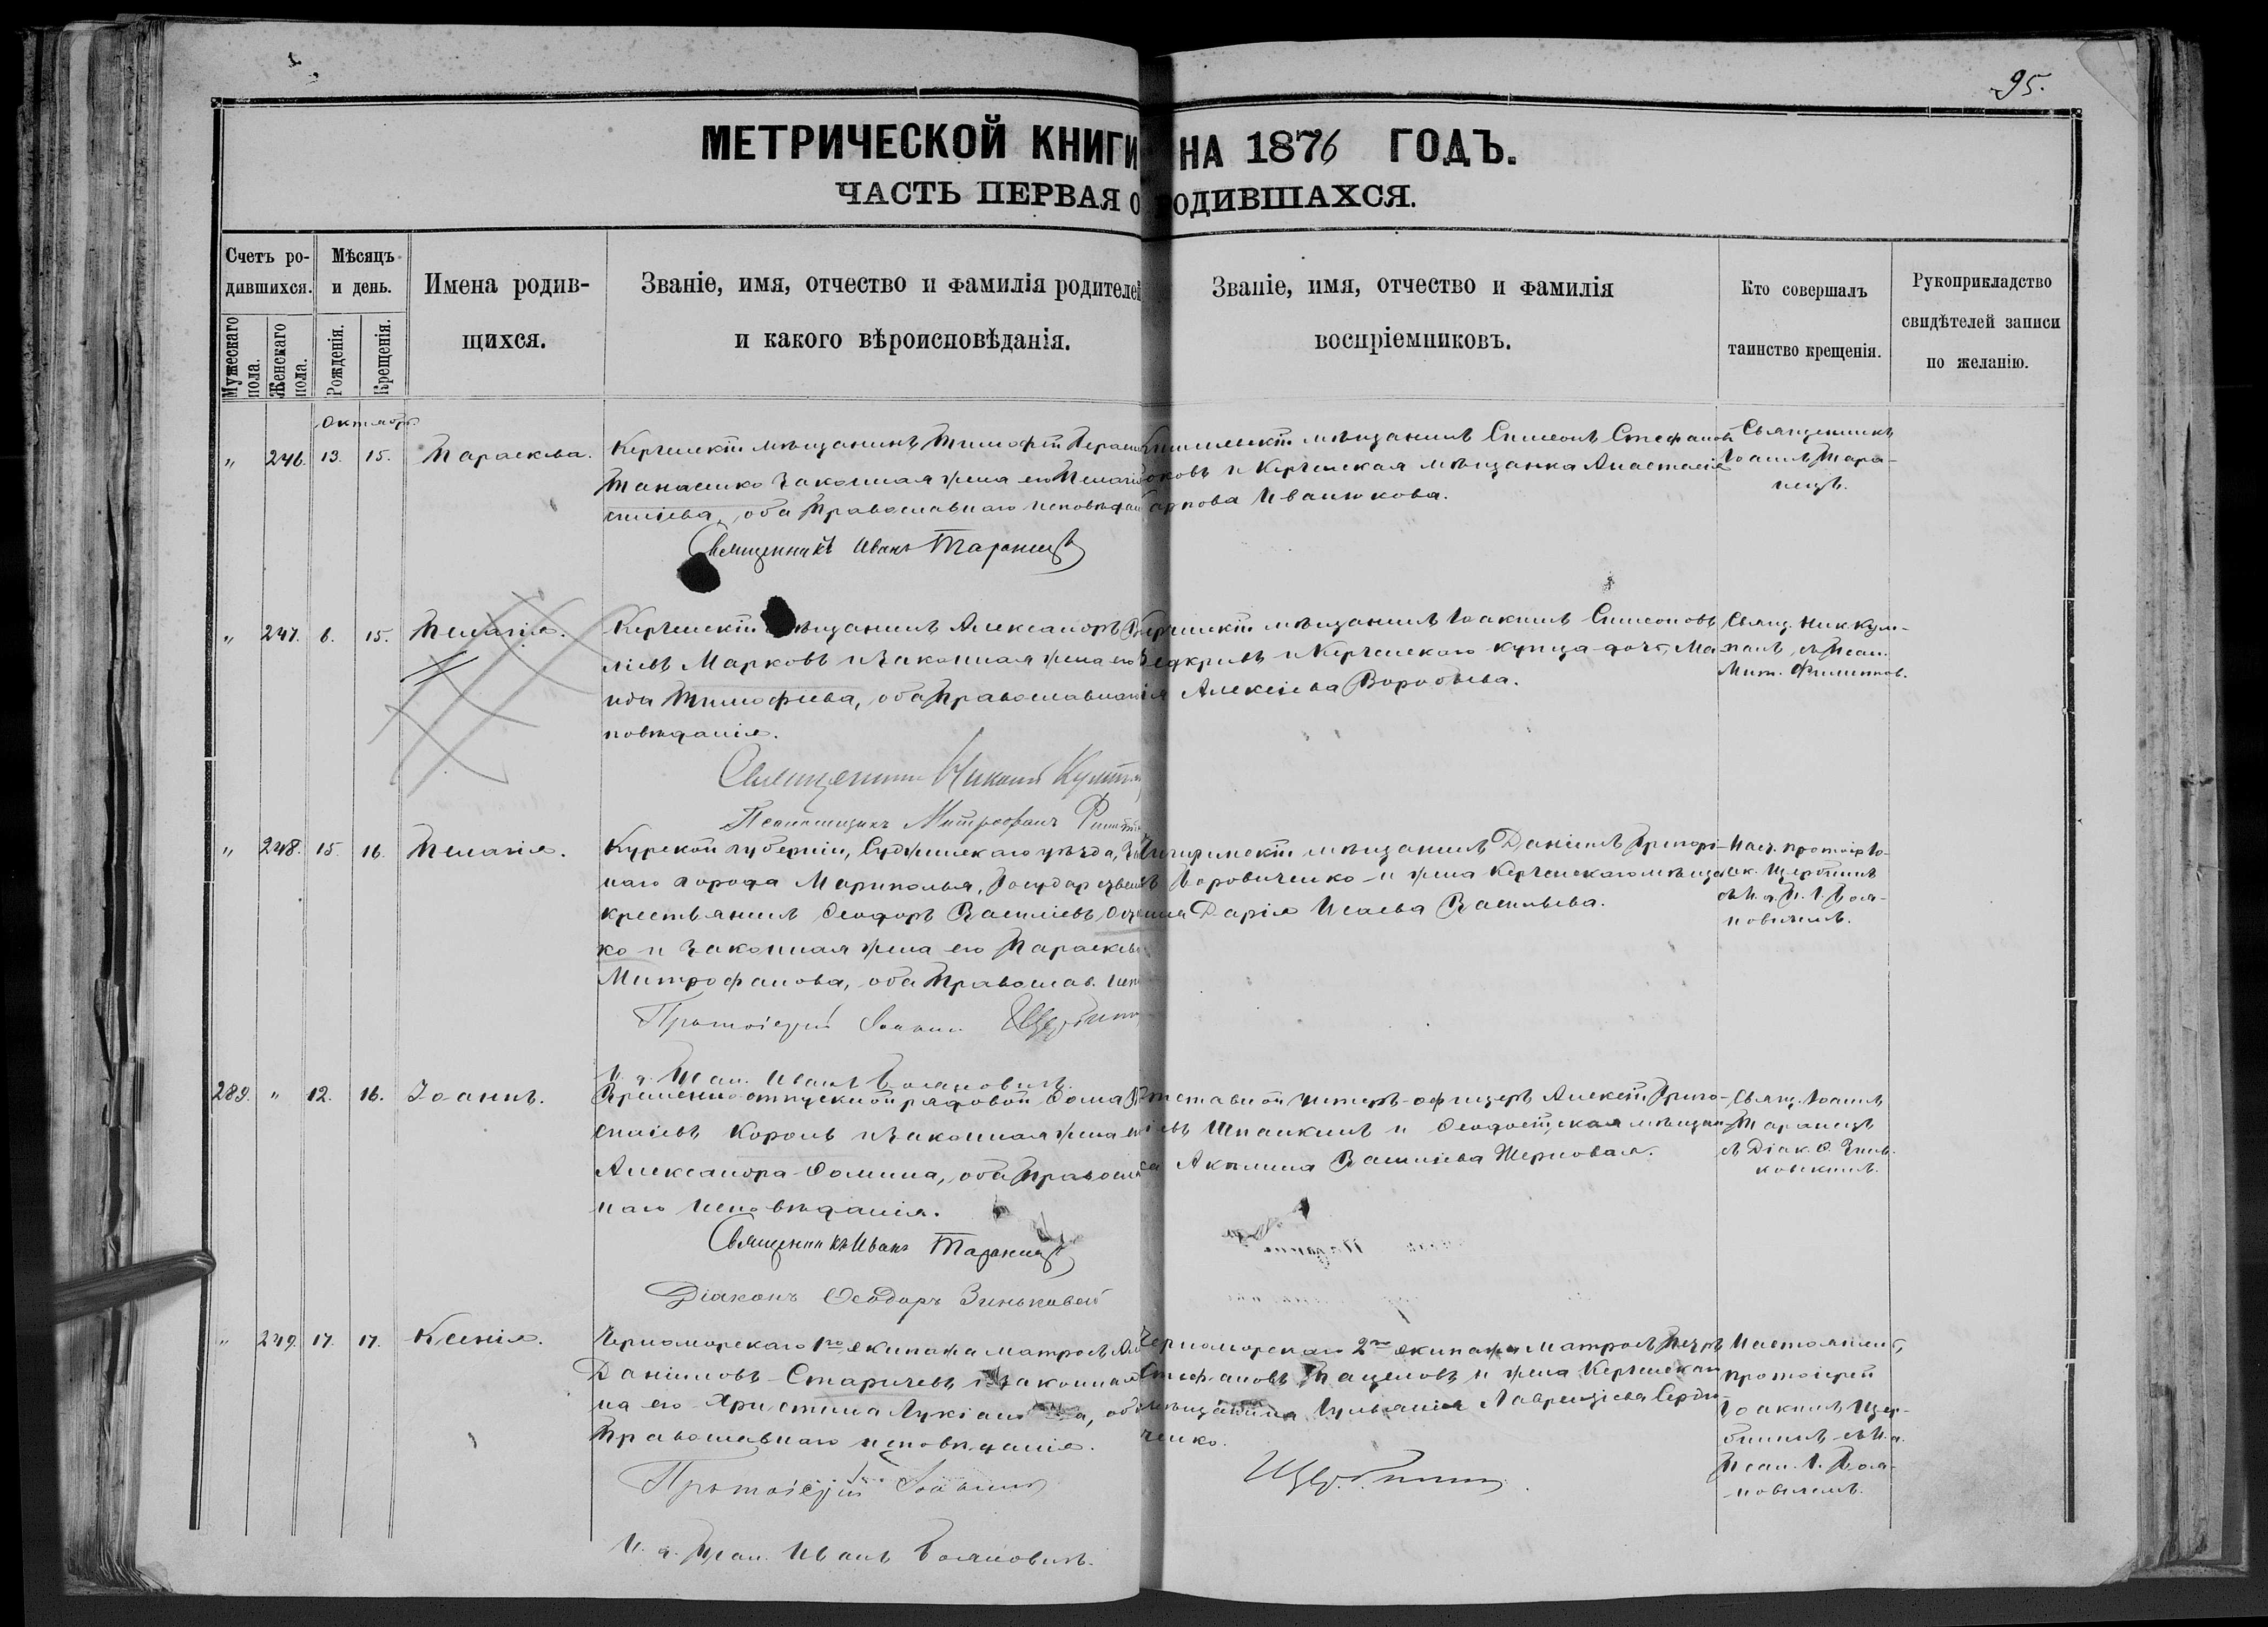 95.
МЕТРИЧЕСКОЙ КНИГИ НА 1876 ГОДЪ.
ЧАСТЬ ПЕРВАЯ О ОДИВШАХСЯ.
Счетъ ро-
дившихся.
Мужескаго пола.
Женскаго пола.
Мѣсяцъ
и день.
Рожденія.
Крещенія.
Имена родив-
щихся.
Званіе, имя, отчество и фамилія родителей
и какого вѣроисповѣданія.
Званіе, имя, отчество и фамилія
воспріемниковъ.
Кто совершалъ
таинство крещенія.
Рукоприкладство
свидѣтелей записи
по желанію.
Октябрь
" 246. 13. 15. Параскева.
Керченскій мѣщанинъ Тимофей
Танасенко законная жена его
оба православнаго
Священникъ Иванъ Таранецъ
мѣщанинъ Симеонъ Стефановъ
и Керченская мѣщанка Анастасія
Иванюкова.
Священникъ
Іоаннъ Тара-
нецъ.
" 247. 6. 15. Пелагія.
Керченскій мѣщанинъ Александръ
Марковъ и законная жена его
Тимофѣева, оба православнаго
повѣданія.
Священникъ Николай
Псаломщикъ Митрофанъ
мѣщанинъ Іоакимъ Симеоновъ
и Керченскаго купца дочь, Ма
Алексіева Воробьева.
Свящ. Ник
съ Псал.
Мит. Филиппов.
" 248. 15. 16. Пелагія.
Курской губерніи, Суджанскаго уѣзда,
наго города Мариполья,
крестьянинъ Ѳеодоръ Василіевъ
ко и законная жена его Параскев
Митрофанова, оба Православ.
Протоіерей Іоакимъ Щербининъ
И. д. Псал. Иванъ Бояновичъ.
мѣщанинъ Даніилъ Григорі-
и жена Керченскаго мѣща
Дарія Исаева Васильева.
Наст. протоіер. Іо-
ак. Щербининъ
съ И. д. П. І. Боя-
новичемъ.
289. " 12. 16. Іоаннъ.
Временно-отпускной рядовой Ѳома
Король и законная жена ег
Александра Ѳомина, оба православ
наго исповѣданія.
Священникъ Иванъ Таранецъ
Діаконъ Ѳеодоръ Зиньковскій
унтеръ-офицеръ Алексѣй Григо-
и Ѳеодосійская мѣщан
Акилина Василіева Чернова.
Свящ. Іоаннъ
Таранецъ
съ Діак. Ѳ. Зинь-
ковскимъ.
" 249. 17. 17. Ксенія.
Черноморскаго 1го экипажа матросъ
Даніиловъ Старичевъ и законная
на его Христина Лукіано а, оба
Православнаго исповѣданія.
Протоіерей Іоакимъ
И. д. Псал. Иванъ Бояновичъ.
Черноморскаго 2го экипажа матросъ Петръ
Стефановъ и жена Керченскаго
мѣщанина Іуліанія Лаврентіева
ченко.
Щербининъ
Настоятель,
протоіерей
Іоакимъ Щер-
бининъ съ И. д.
Псал. І. Боя-
новичемъ.